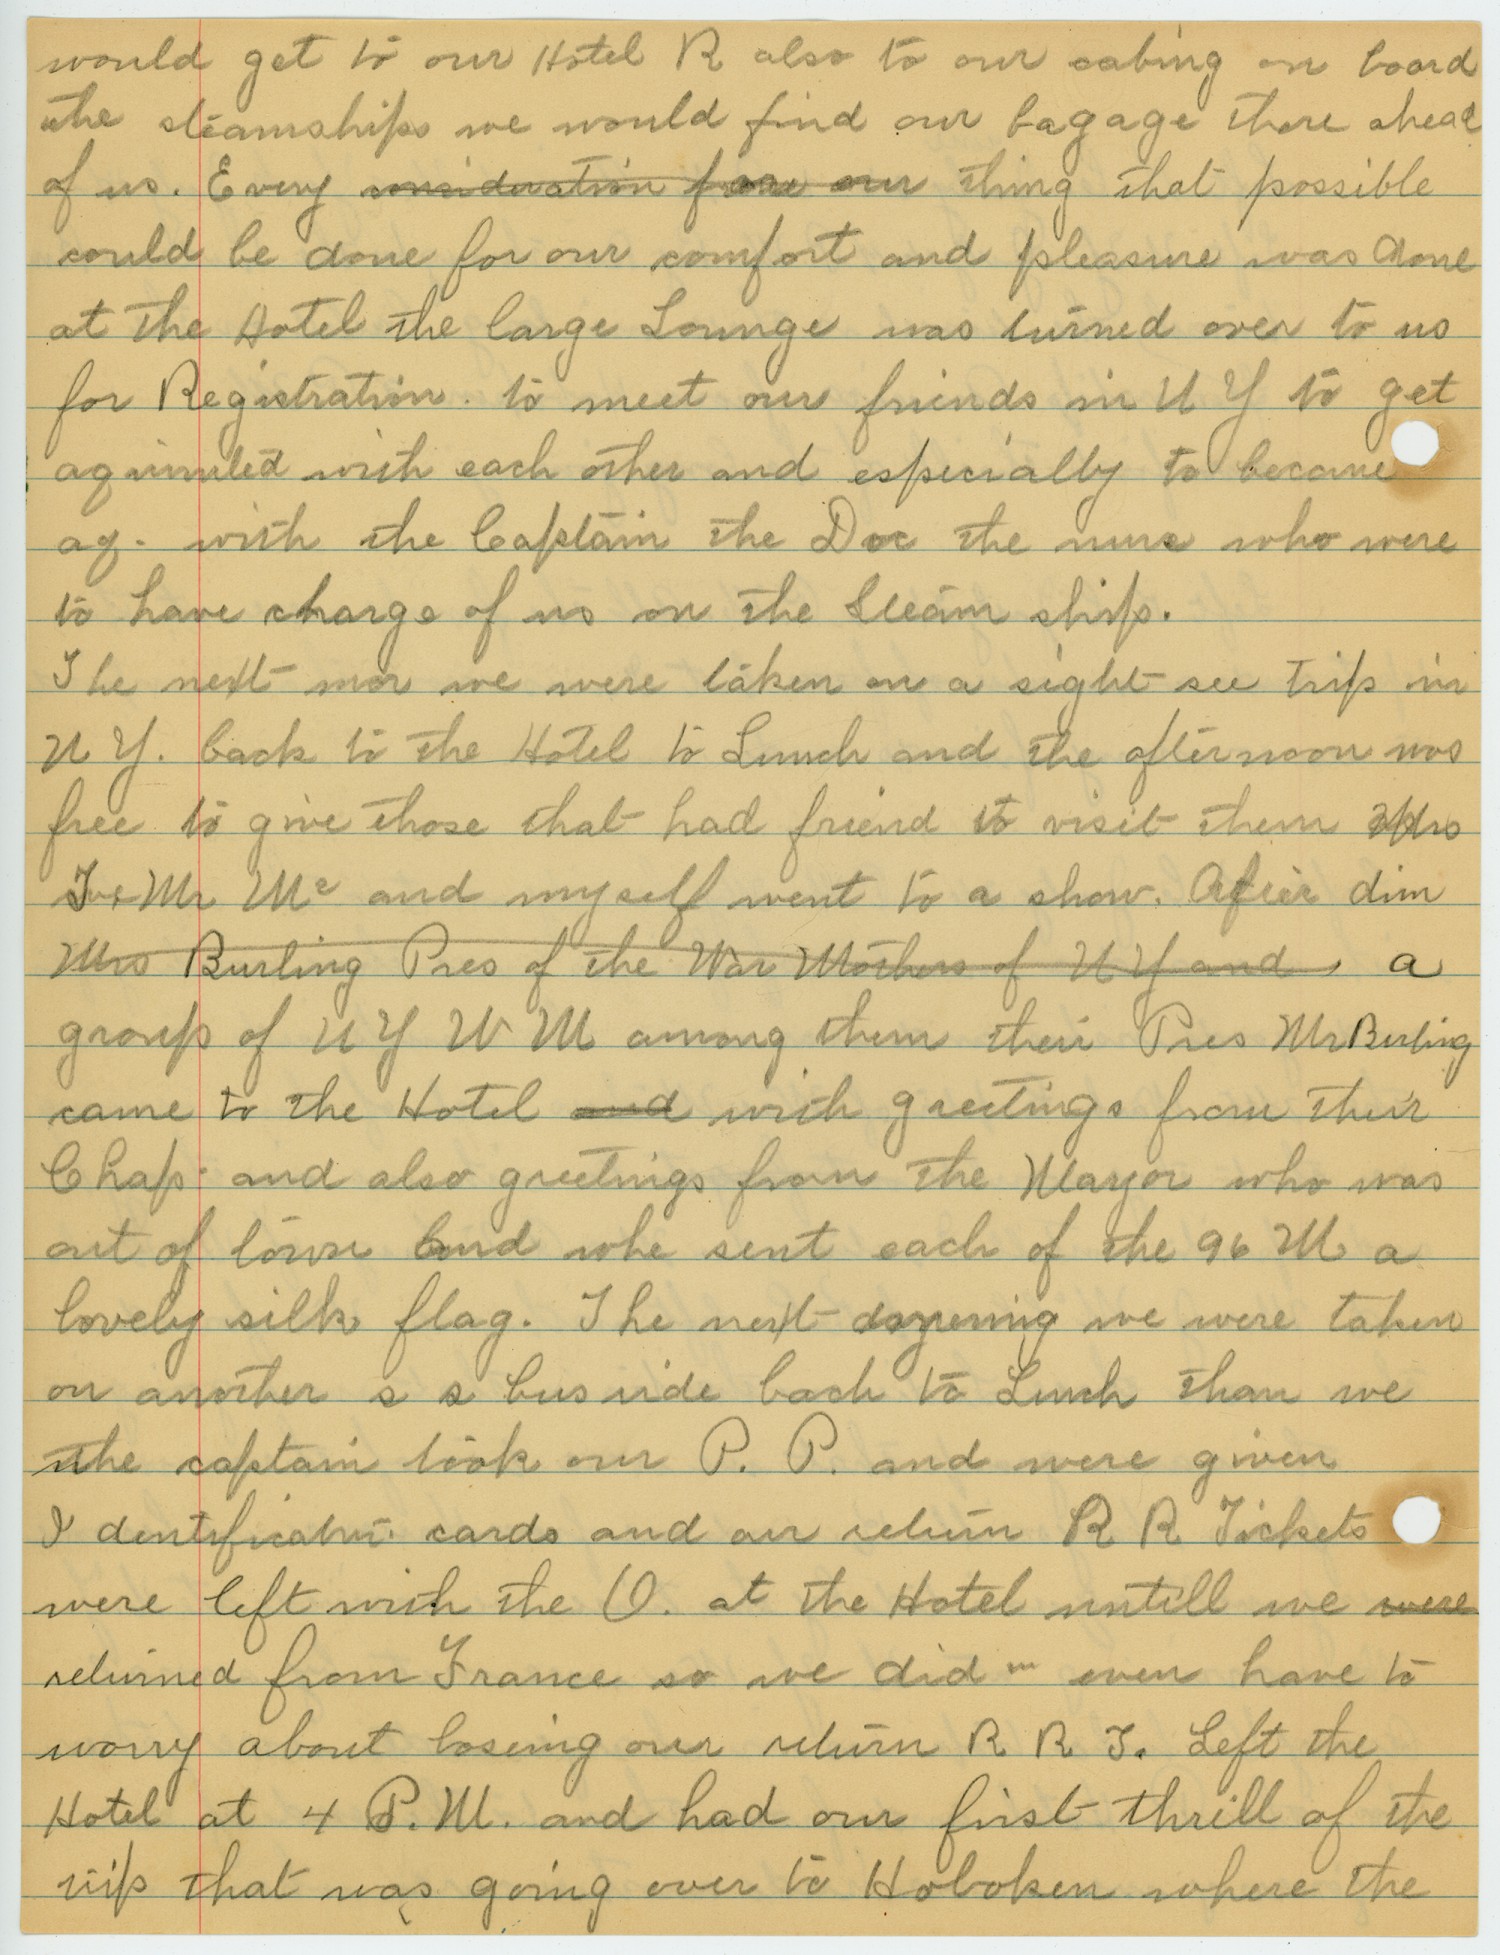 would get to our Hotel R also to our cabing on board
the steamships we would find our bagage there ahead
of us. Every consideration for our thing that possible
could be done for our comfort and pleasure was done
at the Hotel the large Lounge was turned over to us
for Registration. to meet our friends in N Y to get
aquinted with each other and especially to become
aq. with the Captain the Doc the nurs who were
to have charge of us on the Steam ship.
The next mor we were taken on a sight see trip in
N Y. back to the Hotel to Lunch and the afternoon was
free to give those that had friend to visit them Mrs
Mr Mc and myself went to a show. After dim
Mrs Burling Pres of the War Mothers of N Y and a
group of N Y W M among them their Pres Mr Burling
came to the Hotel and with greetings from their
Chap. and also greetings from the Mayor who was
out of town and who sent each of the 96 M a
lovely silk flag. The next we were taken
on another s s bus ride back to Lunch than we
the captain took our P. P. and were given
Identification cards and our return R R Tickets
were left with the O. at the Hotel untill we were
returned from France so we did n even have to
worry about loseing our return R R T. Left the
Hotel at 4 P. M. and had our first thrill of the
trip that was going over to Hoboken where the